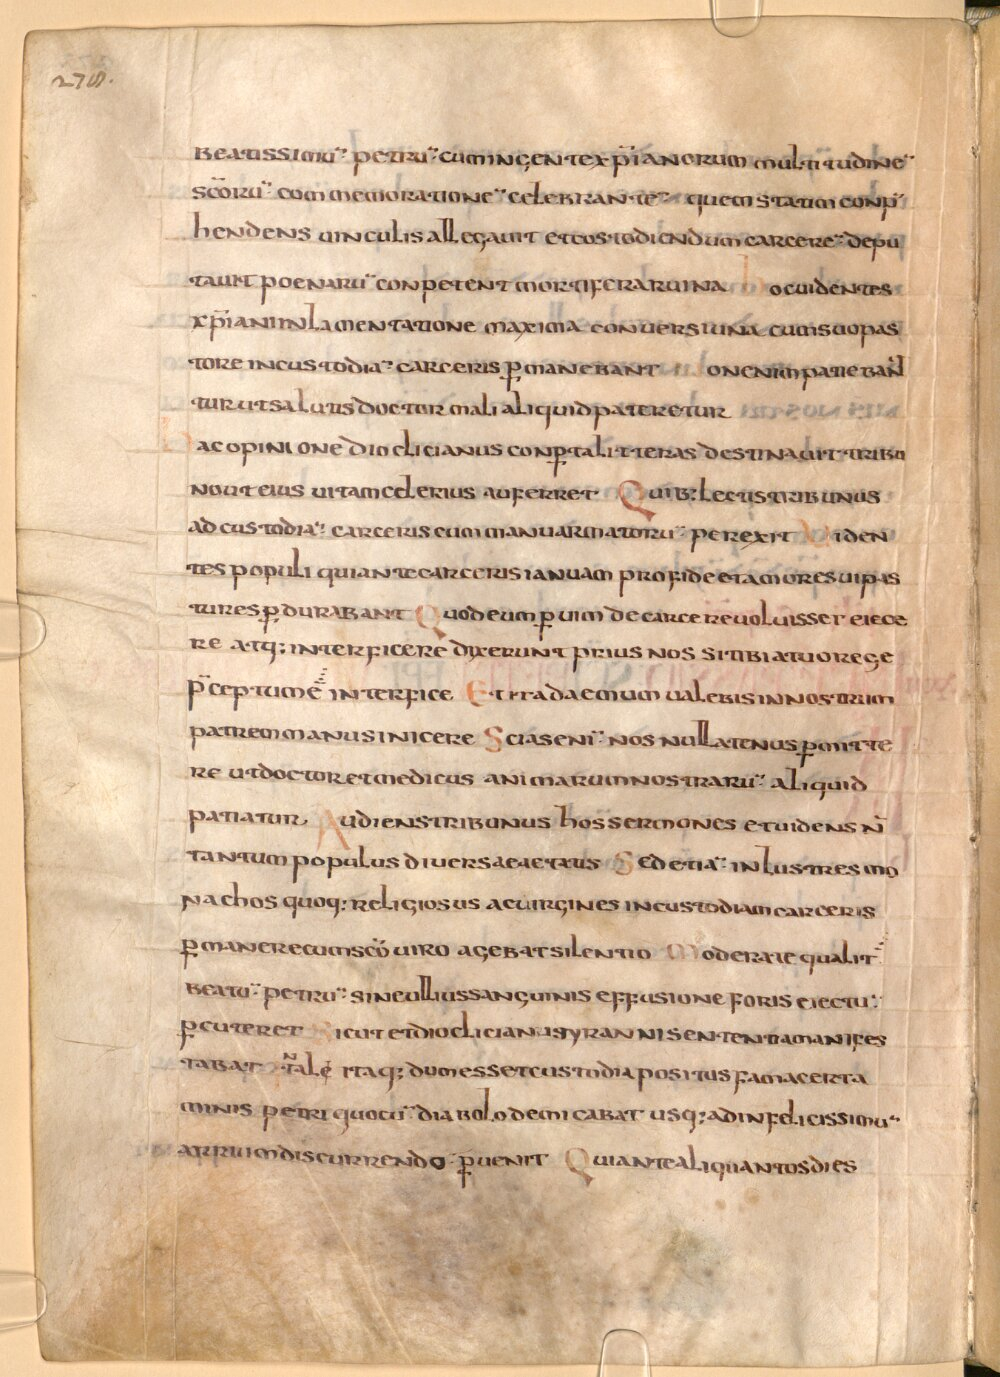 278.
beatissimū petrū cum ingente xp̄ianorum multitudinē
sc̄orū commemorationē celebrantē quem statim conp̄
hendens uinculis allegauit et custodiendum carcerē depu
tauit poenarū conpetent mortifera ruina ocuidentes
xp̄iani in lamentatione maxima conuersi una cum suo pas
tore in custodiā carceris ꝑmanebant onenim patieban̄
tur ut salutis doctor mali aliquid pateretur
ac opinione dioclicianus conꝑta litteras destinauit tribu
no ut eius uitam celerius auferret Quib: lectis tribunus
ad custodiā carceris cum manu armatorū perexit Uiden
tes populi qui ante carceris ianuam pro fide et amore sui pas
tures ꝑdurabant Quod eum ꝑ uim de carcere uoluisset eiece
re atq; interficere dixerunt prius nos si tibi a tuo rege
p̄ceptum ē interfice Et ita da emum ualebis in nostrum
patrem manus inicere Scias enī nos nullatenus ꝑmitte
re ut doctor et medicus animarum nostrarū aliquid
patiatur Audiens tribunus hos sermones et uidens n̄
tantum populus diuersae aetatis Sed etiā inlustres mo
nachos quoq: religiosus ac uirgines in custodiam carceris
ꝑmanere cum sc̄o uiro agebat silentio Moderate qualit̄
beatū petrū sine ullius sanguinis effusione foris eiectū
ꝑcuteret Sicut et diocliciani tyranni sententia manifes
tabat n̄ale itaq; dum esset custodia positus fama certa
minis petri quo cū diabolo demicabat usq; ad infelicissimū
arrium discurrendo ꝑuenit Qui ante aliquantos dies